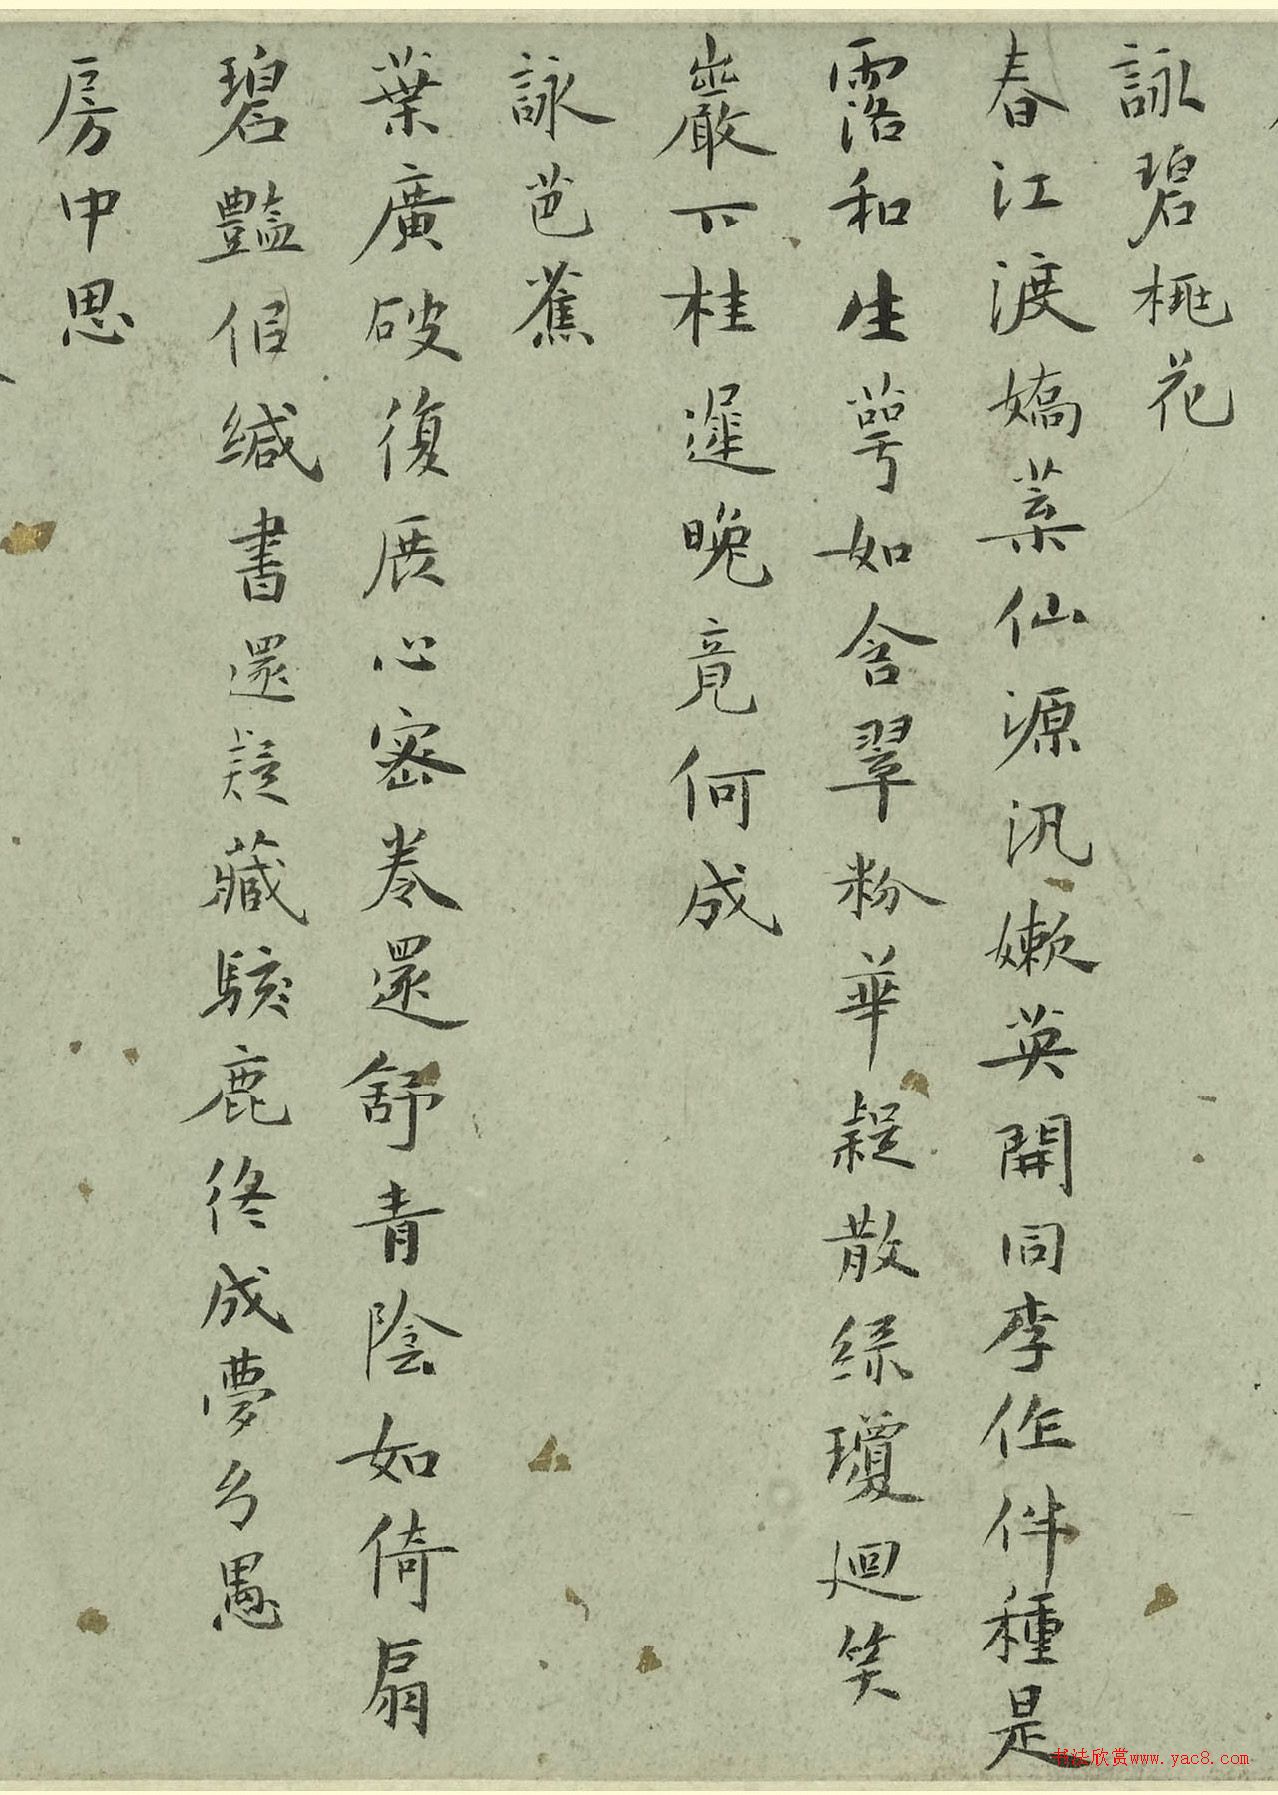 詠碧桃花
春江渡嬌葉仙源汎嫰英開同李作伴種是
露和生萼如含翠粉華疑散綠瓊迴笑
巖下桂遲晚竟何成
詠芭蕉
葉廣破復展心密卷還舒青陰如倚扇
碧豔佀緘書還疑藏駭鹿終成夢兮愚
房中思
书法欣赏www.yac8.com